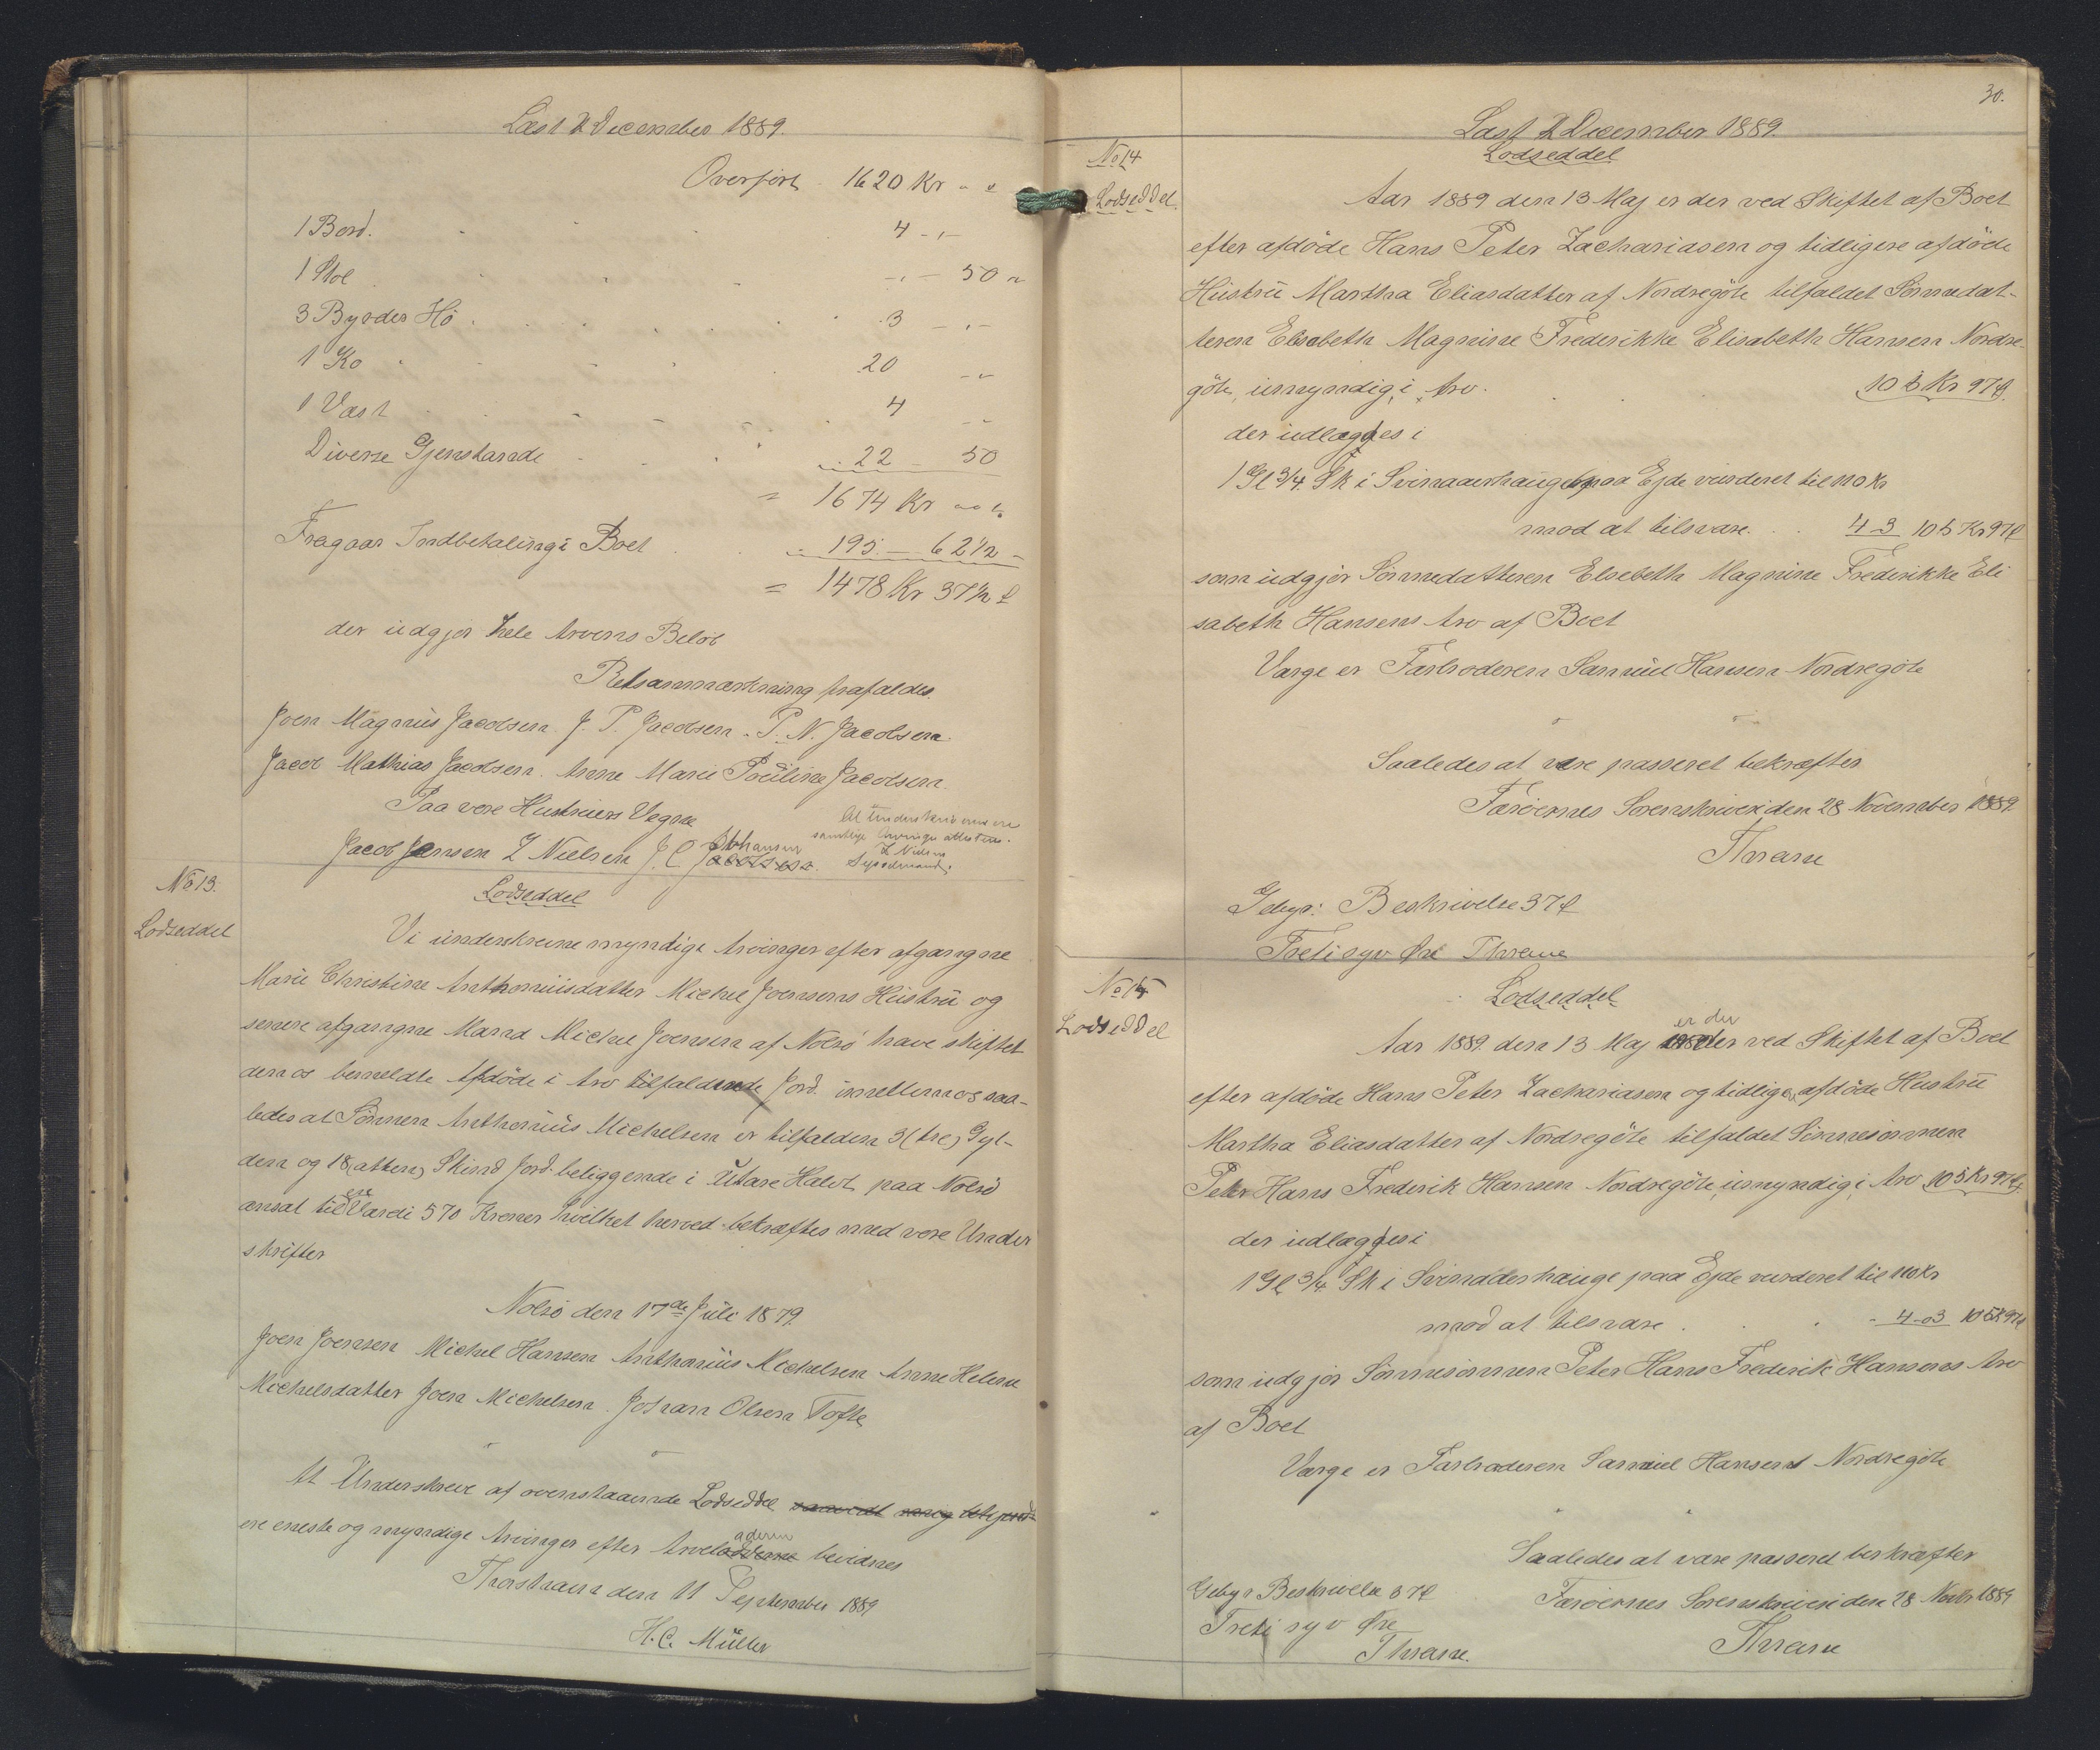 Læst 2 December 1889.
Overført 1620 Kr " "
1 Bord. 4 - " -
1 Stol - " - 50 "
3 Byrder Hö 3 - " -
1 Ko 20 - "
1 Væst 4 - "
Diverse Gjenstande 22 - 50
= 1674 Kr " "
Fragaar Indbetaling i Boet 195 - 62 1/2 -
= 1478 Kr 37 1/2 f
der udgjør hele Arvens Beløb
Retsanmærkning frafaldes.
Joen Magnus Jacobsen. J. P. Jacobsen. P. N. Jacobsen.
Jacob Mathias Jacobsen. Anne Marie Pouline Jacobsen.
Paa vore Hustruers Vegne
Jacob Jensen Z Nielsen J. C. Johansen
At Underskriverne ere
samtlige Arvinger attesteres.
Z Nielsen
Sysselmand.
No 13.
Lodseddel
Lodseddel
Vi underskrevne myndige Arvinger efter afgangne
Marie Christine Anthoniusdatter Michel Joensens Hustru og
senere afgangne Mand Michel Joensen af Nolsö have skiftet
den os bemeldte Afdöde i Arv tilfaldende Jord imellem os saa-
ledes at Sönnen Anthonius Michelsen er tilfalden 3 (tre) Gyl-
den og 18 (atten) Skind Jord beliggende i Utare Halvt paa Nolsö
ansat til en Værdi 570 Kroner hvilket herved bekræftes med vore Under
skrifter
Nolsö den 17de Juli 1879.
Joen Joensen Michel Hansen Anthonius Michelsen Anne Helene
Michelsdatter Joen Michelsen. Johan Olsen Tofte
At Underskreve af ovenstaaende Lodseddel saavidt mig bekjendt
ere eneste og myndige Arvinger efter Arveladeren bevidnes
Thorshavn den 11 September 1889
H. C. Müller
30.
Læst 2 December 1889.
No 14
Lodseddel
Lodseddel
Aar 1889 den 13 Maj er der ved Skiftet af Boet
efter afdöde Hans Peter Zachariasen og tidligere afdöde
Hustru Martha Eliasdatter af Nordregöte tilfaldet Sönnedat-
teren Elsebeth Magnine Frederikke Elisabeth Hansen Nordre-
göte, umyndig, i Arv. 105 Kr 97 f
der udlægges i
1 Gl 3/4 Sk i Svinaaerhauge paa Ejde vurderet til 110 Kr
mod at tilsvare. 4 3 105 Kr 97 f
som udgjör Sönnedatteren Elsebeth Magnine Frederikke Eli
sabeth Hansens Arv af Boet
Værge er Farbroderen Samuel Hansen Nordregöte
Saaledes at være passeret bekræfter
Færöernes Sorenskriveri den 28 November 1889.
Thrane
Gebyr: Beskrivelse 37 f
Tretisyv Øre Thrane
No 15
Lodseddel
Lodseddel
Aar 1889. den 13 Maj er der ved Skiftet af Boet
efter afdöde Hans Peter Zachariasen og tidligere afdöde Hustru
Martha Eliasdatter af Nordregöte tilfaldet Sönnesönnen
Peter Hans Frederik Hansen Nordregöte, umyndig, i Arv 105 Kr 97 f
der udlægges i
1 Gl 3/4 Sk i Svinadeshauge paa Ejde vurderet til 110 Kr
mod at tilsvare. 4 - 03 105 K 97 f
som udgjör Sönnesönnen Peter Hans Frederik Hansens Arv
af Boet
Værge er Farbroderen Samuel Hansen Nordregöte
Saaledes at være passeret bekræfter
Færöernes Sorenskriveri den 28 Novbr 1889
Thrane
Gebyr Beskrivelse 37 f
Treti syv Øre
Thrane.